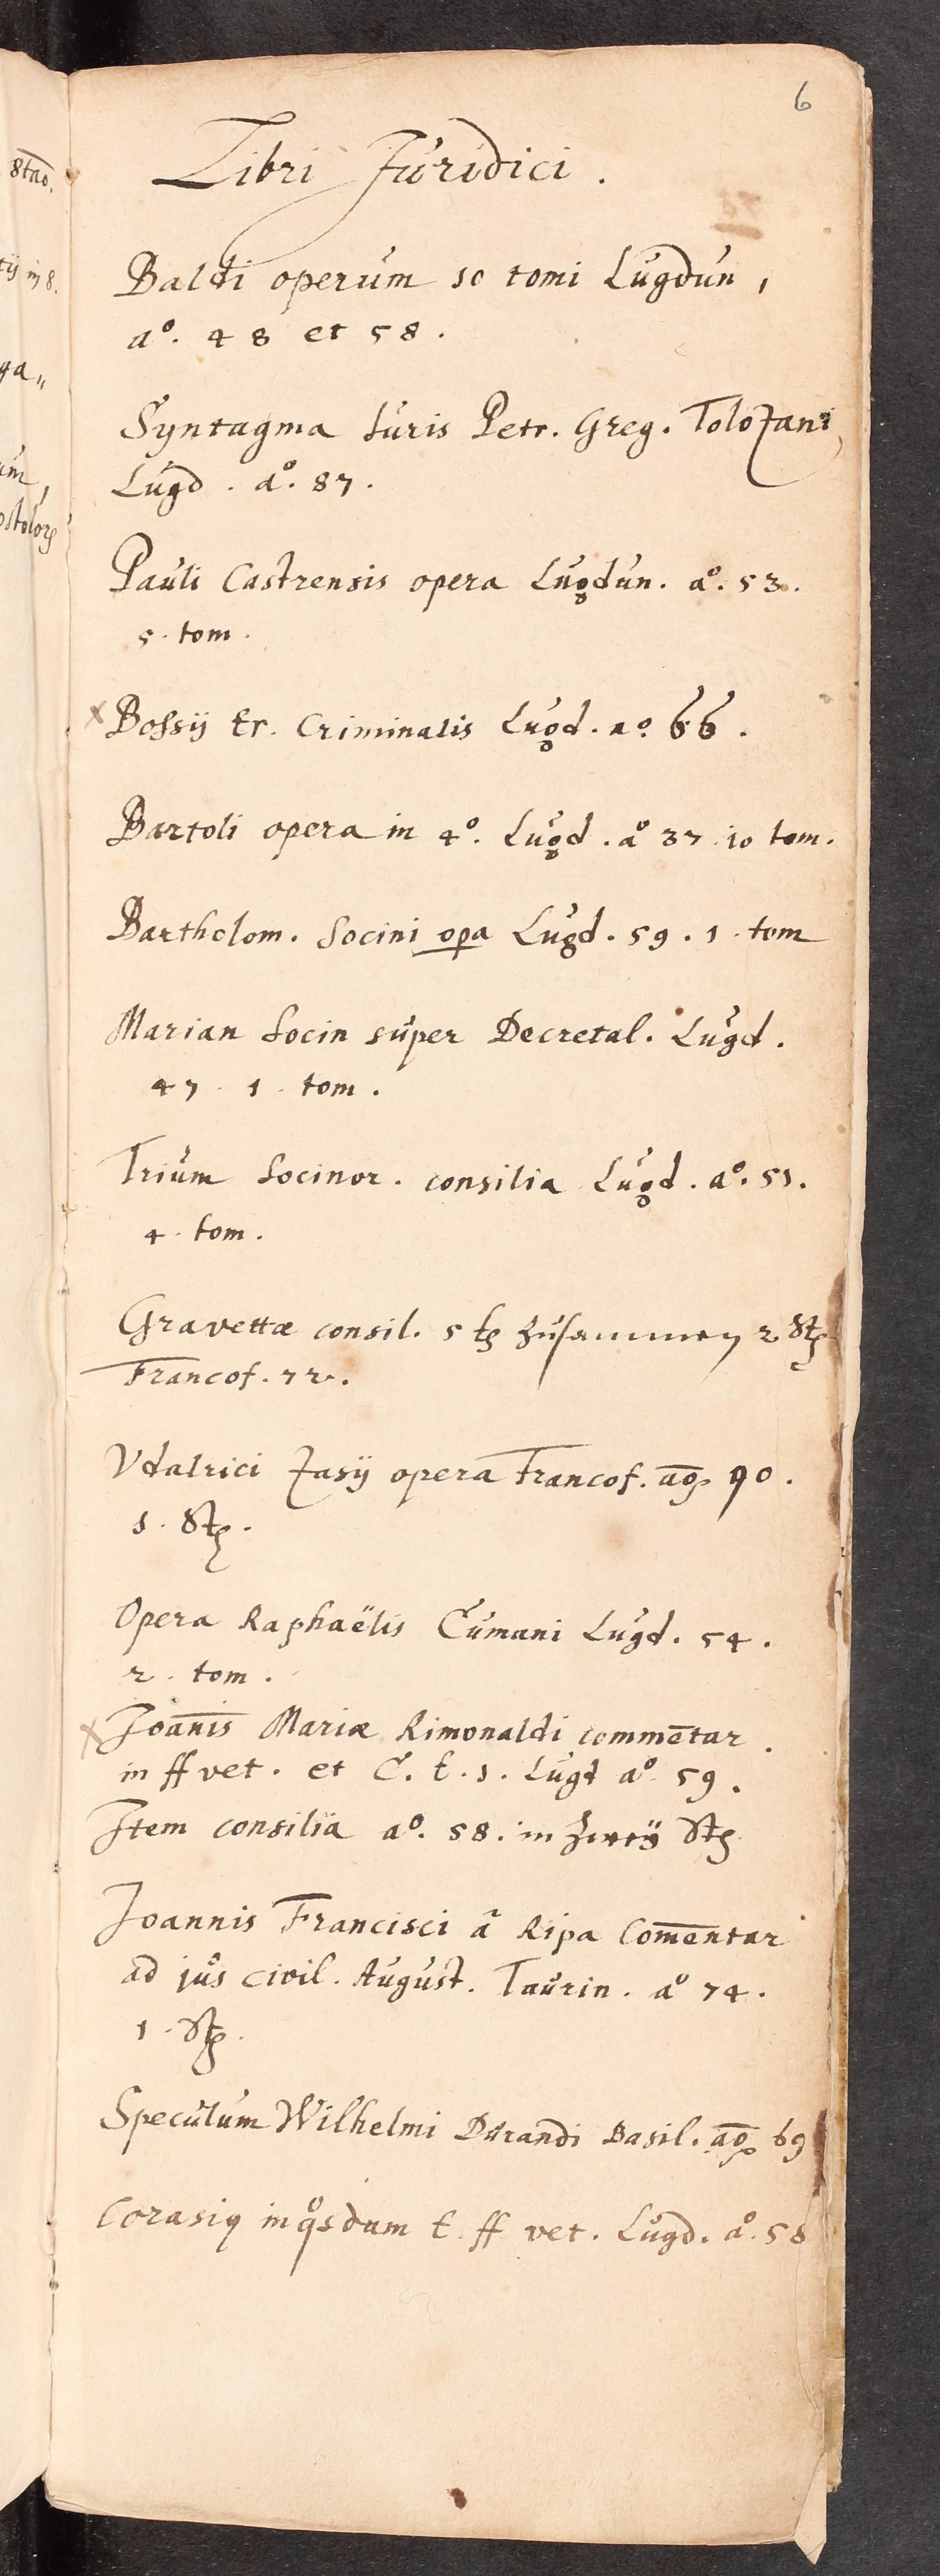 6
8tao.
Libri Juridici.
Baldi operum 10 tomi Lugdun,
ao. 48 et 58.
Syntagma Iuris Petr. Greg. Tolozani,
Lugd. ao. 87.
Pauli Castrensis opera Lugdun. ao. 53.
5. tom.
x Bossij tr. Criminalis Lugd. ao. 66.
Bartoli opera in 4o. Lugd. ao 37. 10 tom.
Bartholom. Socini opa Lugd. 59. 1. tom
Marian Socin super Decretal. Lugd.
47. 1. tom.
Trium Socinor. consilia Lugd. ao. 51.
4. tom.
Gravettæ consil. 5 zusammen 2
Francof. 72.
Vdalrici Zasij opera Francof. ao 90.
1.
Opera Raphaëlis Cumani Lugd. 54.
2. tom.
x Joanis Mariæ Rimonaldi commentar.
in ff vet. et C. t. 1. Lugd ao. 59.
Item consilia ao. 58. in zweÿ
Joannis Francisci à Ripa Comentar
ad jus civil. August. Taurin. ao 74.
1.
Speculum Wilhelmi Durandi Basil. ao 69
Corasiq in qsdam t. ff vet. Lugd. ao. 58